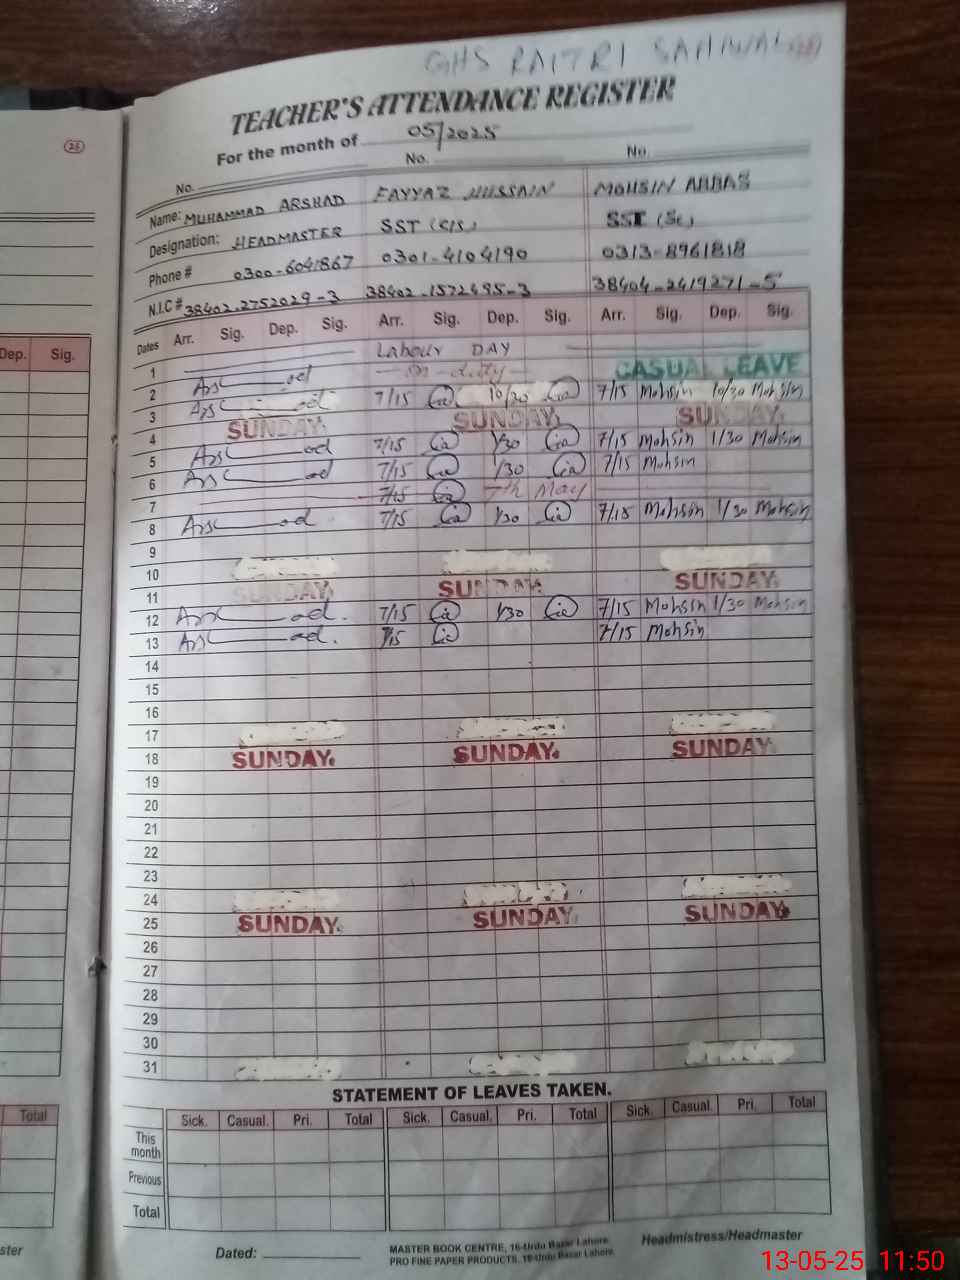 GHS RAITRI SAHIWAL
TEACHER'S ATTENDANCE REGISTER
For the month of 05/2025
26
No. No. No.
Name: MUHAMMAD ARSHAD FAYYAZ HUSSAIN MOHSIN ABBAS
Designation: HEADMASTER SST (C/S) SST (Sc)
Phone # 0300-6041867 0301-4104190 0313-8961818
N.I.C # 38402-2752029-3 38402-1572495-3 38404-2419271-5
Dep. Sig.
Dates Arr. Sig. Dep. Sig. Arr. Sig. Dep. Sig. Arr. Sig. Dep. Sig.
1 Labour DAY
2 on duty CASUAL LEAVE
3 7/15 10/30 7/15 Mohsin 10/30 Mohsin
4 SUNDAY. SUNDAY. SUNDAY.
5 7/15 1/30 7/15 Mohsin 1/30 Mohsin
6 7/15 1/30 7/15 Mohsin
7 7/15 7th May
8 7/15 1/30 7/15 Mohsin 1/30 Mohsin
9
10
11 SUNDAY. SUNDAY. SUNDAY.
12 7/15 1/30 7/15 Mohsin 1/30 Mohsin
13 7/15 7/15 Mohsin
14
15
16
17
18 SUNDAY. SUNDAY. SUNDAY.
19
20
21
22
23
24
25 SUNDAY. SUNDAY. SUNDAY.
26
27
28
29
30
31
STATEMENT OF LEAVES TAKEN.
Total
Sick. Casual. Pri. Total Sick. Casual. Pri. Total Sick. Casual. Pri. Total
This month
Previous
Total
ster
Dated:
MASTER BOOK CENTRE, 16-Urdu Bazar Lahore.
PRO FINE PAPER PRODUCTS. 16-Urdu Bazar Lahore.
Headmistress/Headmaster
13-05-25 11:50